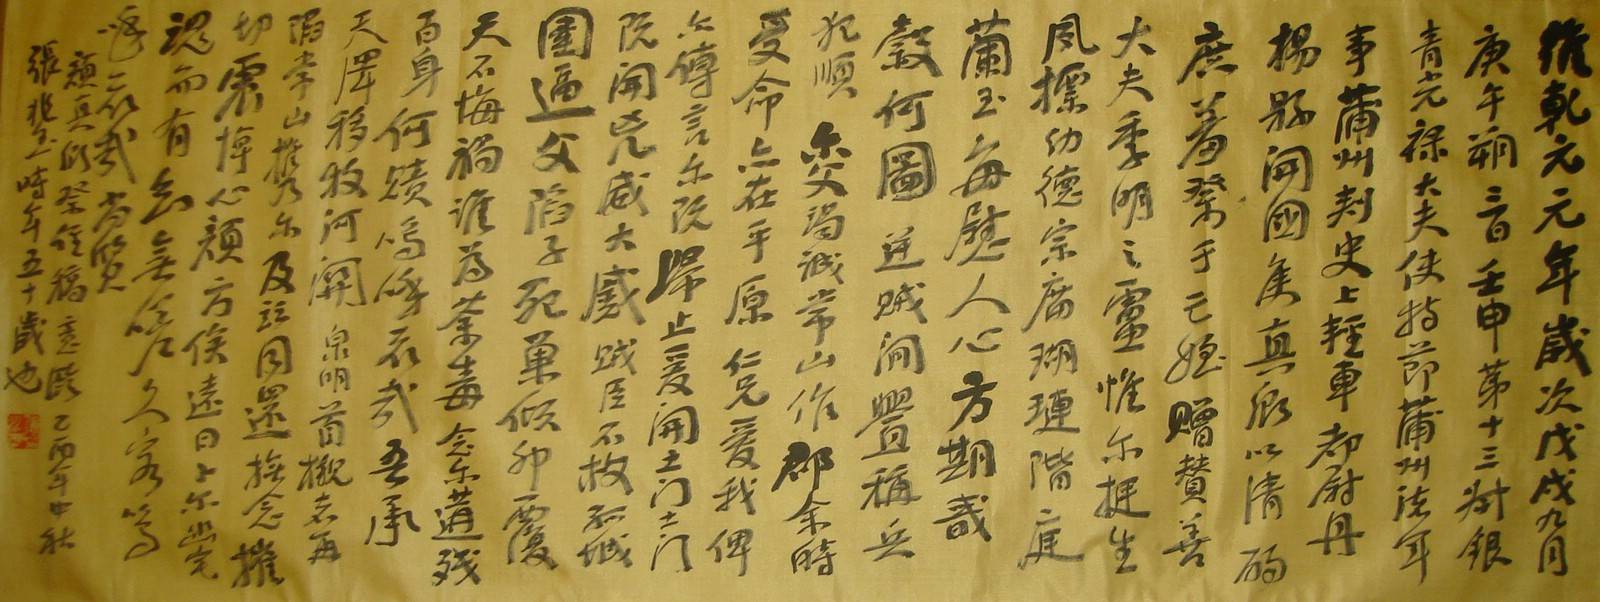 維乾元元年歲次戊戌九月
庚午朔三日壬申第十三叔銀
青光祿大夫使持節蒲州諸軍
事蒲州刺史上輕車都尉丹
楊縣開國侯真卿以清酌
庶羞祭于亡姪贈贊善
大夫季明之靈惟尔挺生
夙標幼德宗廟瑚璉階庭
蘭玉每慰人心方期戩
穀何圖逆賊間釁稱兵
犯順尔父竭誠常山作郡余時
受命亦在平原仁兄愛我俾
尔傳言尔既歸止爰開土门土门
既開兇威大蹙賊臣不救孤城
圍逼父陷子死巢傾卵覆
天不悔禍誰為荼毒念尔遘殘
百身何贖嗚呼哀哉吾承
天澤移牧河關泉明首櫬者再
陷常山攜尔及茲同還撫念摧
切震悼心顏方俟遠日卜尔幽宅
魂而有知無嗟久客嗚
呼哀哉尚饗
顏真卿祭侄稿意臨乙酉年中秋
張兆玉時年五十歲也